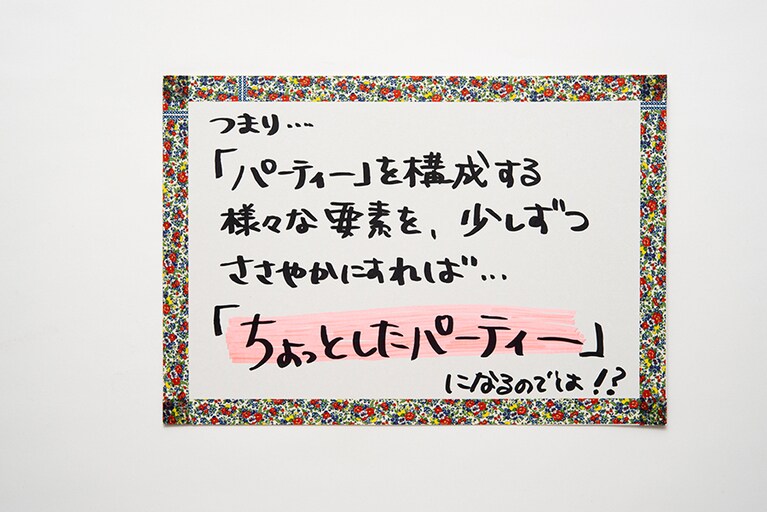 つまり…
「パーティー」を構成する
様々な要素を、少しずつ
ささやかにすれば…
「ちょっとしたパーティー」
になるのでは!?